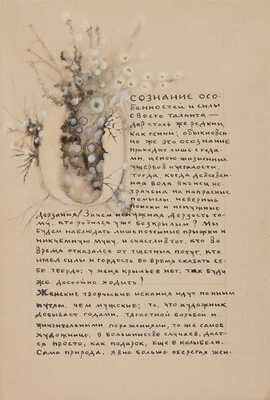 СОЗНАНИЕ ОСО-
БЕННОСТЕЙ И СИЛЫ
СВОЕГО ТАЛАНТА —
ДАР СТОЛЬ ЖЕ РЕДКИЙ,
КАК ГЕНИЙ; ОБЫКНОВЕН-
НО ЖЕ ЭТО ОСОЗНАНИЕ
ПРИХОДИТ ЛИШЬ С ГОДА-
МИ, ЦЕНОЮ ЖИЗНЕННЫХ
УЩЕРБОВ И УСТАЛОСТИ
ТОГДА, КОГДА
ВОЛА ЖИЗНИ ИС-
ТРАЧЕНА НА НАПРАСНЫЕ
ПОМЫСЛЫ, НЕВЕРНЫЕ
ПОИСКИ И НЕНУЖНЫЕ
ДЕРЗАНИЯ! ЗАЧЕМ НЕНУЖНАЯ ДЕРЗОСТЬ ТО-
МУ, КТО РОДИЛСЯ УЖЕ БЕСКРЫЛЫМ? МЫ
БУДЕМ НАБЛЮДАТЬ ЛИШЬ ПОТЕШНЫЕ ПРЫЖКИ И
НИКЧЁМНУЮ МУКУ, И СЧАСТЛИВ ТОТ, КТО ВО
ВРЕМЯ ОТКАЗАЛСЯ ОТ ТЩЕТНЫХ ПОТУГ, КТО
ИМЕЛ СИЛЫ И ГОРДОСТЬ ВО ВРЕМЯ СКАЗАТЬ СЕ-
БЕ ТВЕРДО: У МЕНЯ КРЫЛЬЕВ НЕТ, ТАК БУДУ
ЖЕ ДОСТОЙНО ХОДИТЬ!
ЖЕНСКИЕ ТВОРЧЕСКИЕ ИСКАНИЯ ИДУТ ПО ИНЫМ
ПУТЯМ, ЧЕМ МУЖСКИЕ; ТО, ЧТО ХУДОЖНИК
ДОБЫВАЕТ ГОДАМИ, ТЯГОСТНОЙ БОРЬБОЙ И
УНИЗИТЕЛЬНЫМИ ПОРАЖЕНИЯМИ, ТО ЖЕ САМОЕ
ХУДОЖНИЦЕ, В БОЛЬШИНСТВЕ СЛУЧАЕВ, ДАЕТ-
СЯ ПРОСТО, КАК ПОДАРОК, ЕЩЕ В КОЛЫБЕЛИ.
САМА ПРИРОДА, ЯВНО БОЛЬШЕ ОБЕРЕГАЯ ЖЕН-